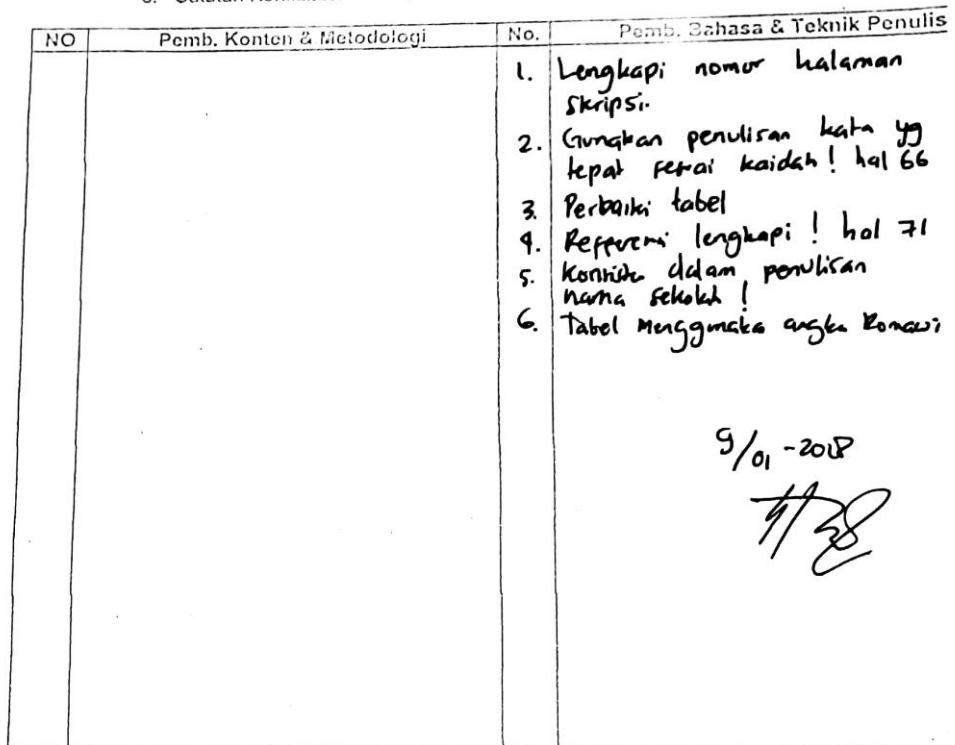 NO Pemb. Konten & Metodologi No. Pemb. Bahasa & Teknik Penulis
1. Lengkapi nomor halaman
skripsi.
2. Gunakan penulisan kata yg
tepat sesuai kaidah! hal 66
3. Perbaiki tabel
4. Refferensi lengkapi! hal 71
5. Konsisten dalam penulisan
nama sekolah!
6. Tabel Menggunaka angka Romawi
9/01-2018